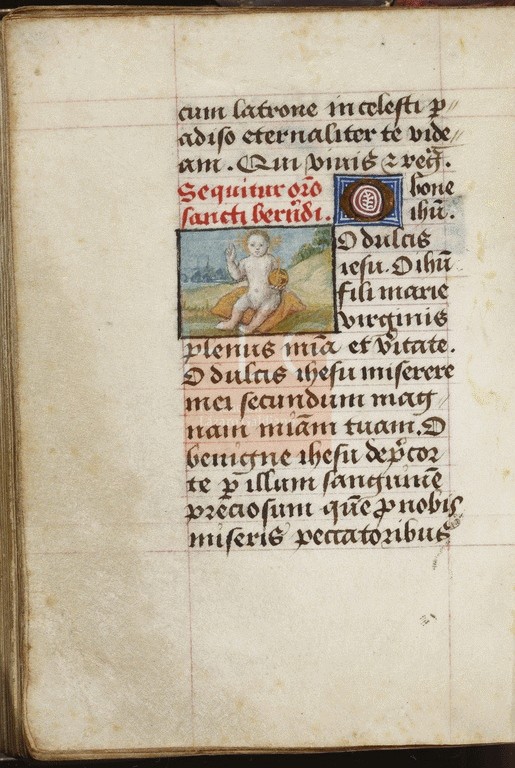 cum latrone in celesti p̄
adiso eternaliter te vide
am. Qui viuis ⁊ reg̃.
Sequitur orõ
sancti berñdi.
O bone
ihũ.
O dulcis
iesu. O ihũ
fili marie
virginis
plenus mĩa et vĩtate.
O dulcis ihesu miserere
mei secundum mag
nam miãm tuam. O
benigne ihesu dep̃cor
te ꝑ illum sanguinẽ
preciosum quẽ ꝓ nobis
miseris peccatoribus